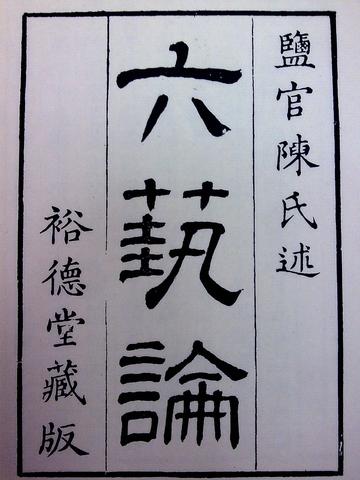 鹽官陳氏述
六埶論
裕德堂藏版